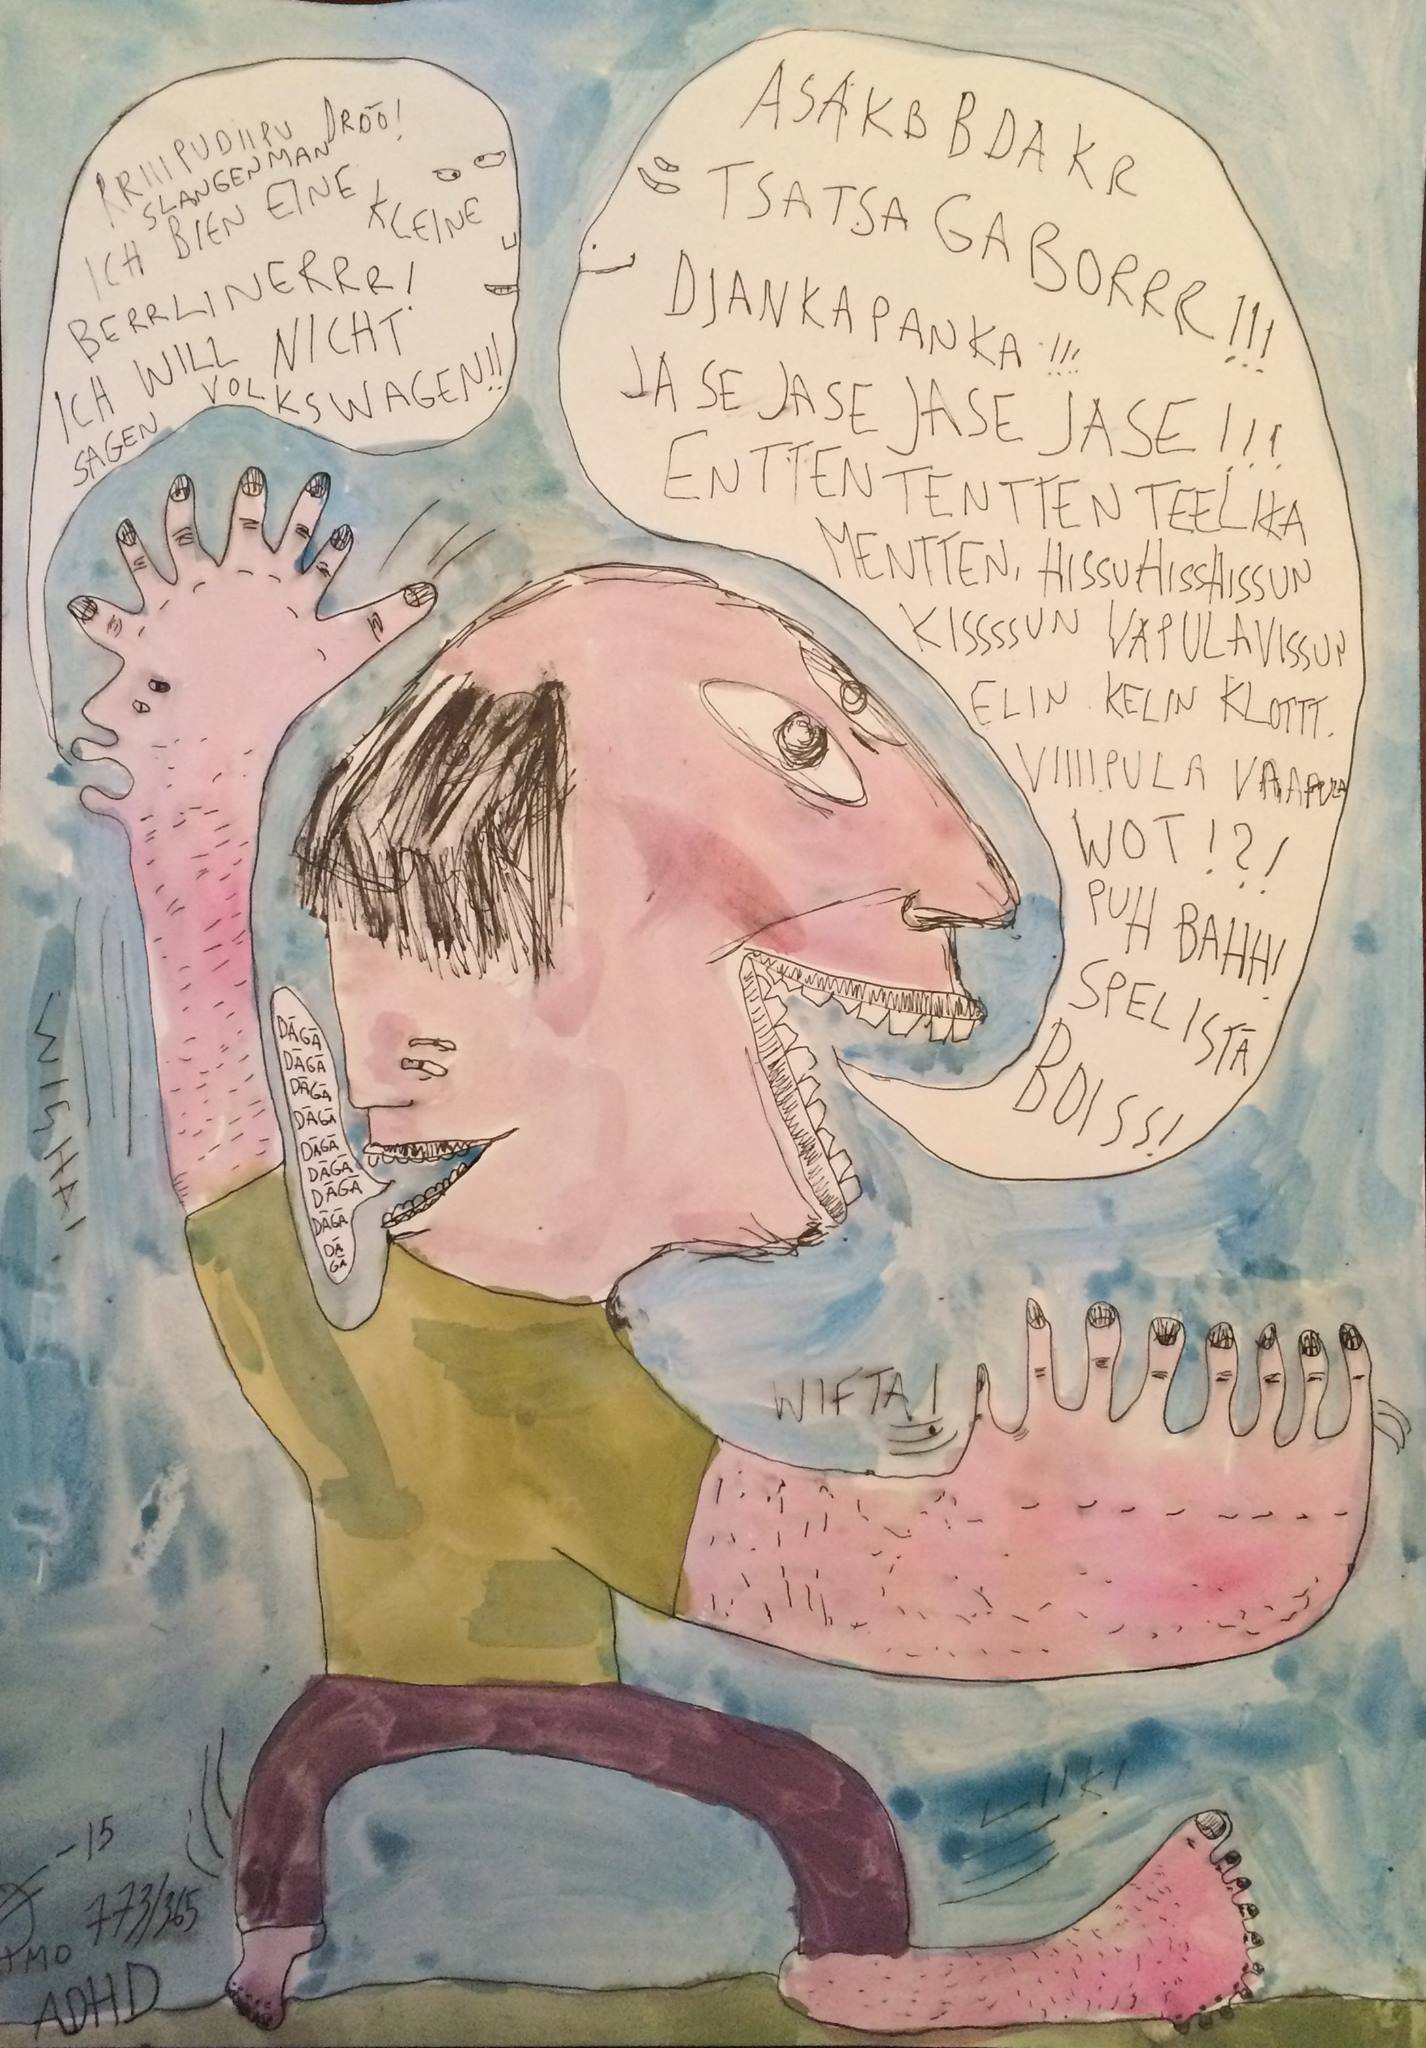 RRIIIPUDIIPU DRÖÖ!
SLANGENMAN
ICH BIEN EINE KLEINE
BERRLINERRR!
ICH WILL NICHT
SAGEN VOLKSWAGEN!!
ASAKB BDAKR
TSATSA GABORRR!!!
DJANKAPANKA!!!
JASE JASE JASE JASE!!!
ENTTEN TENTTEN TEELIKA
MENTTEN, HISSUHISSHISSUN
KISSSSUN VAPULAVISSUN
ELIN KELIN KLOTTT.
VIIIIPULA VAAAPULA
WOT!?!
PUH BAHH!
SPELISTÄ
BOISS!
DÄGÄ
DÄGÄ
DÄGÄ
DÄGÄ
DÄGÄ
DÄGÄ
DÄGÄ
DÄGÄ
DÄ
GÄ
WIFTA!
-15
773/365
ADHD